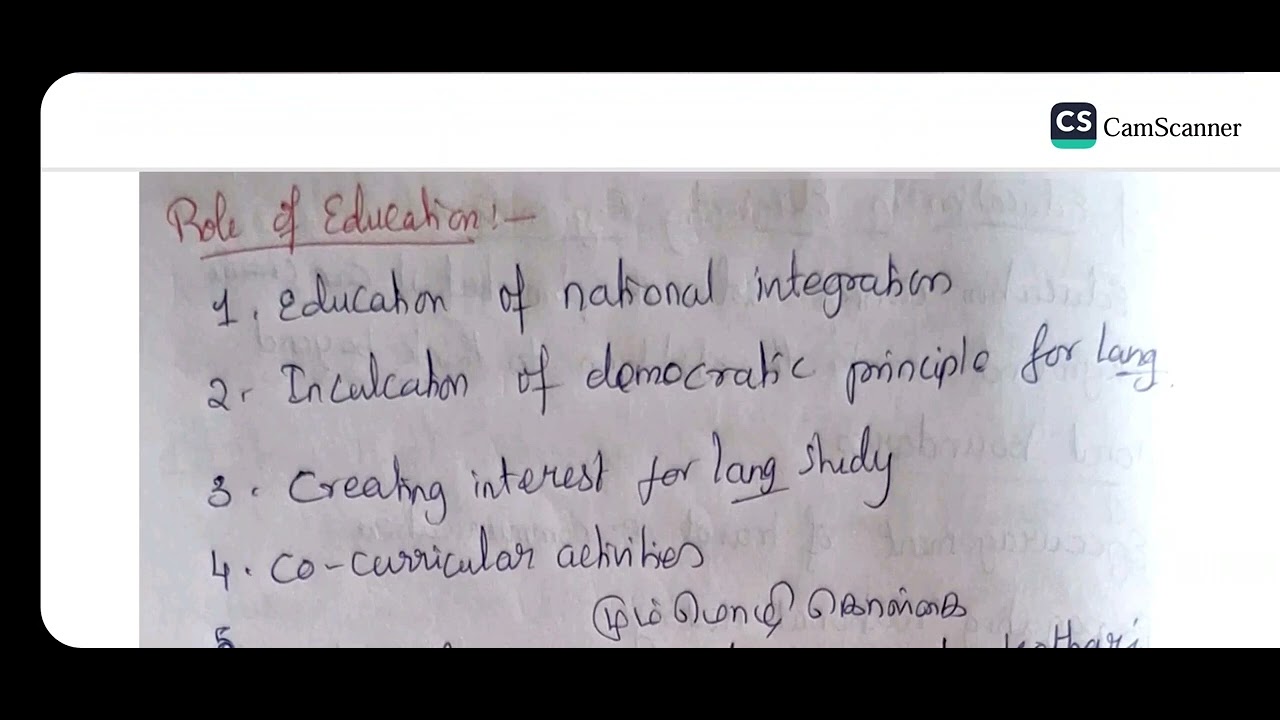 CS CamScanner
Role of Education:-
1. Education of national integration
2. Inculcation of democratic principle for lang
3. Creating interest for lang study
4. Co-curricular activities
மும்மொழி கொள்கை
5